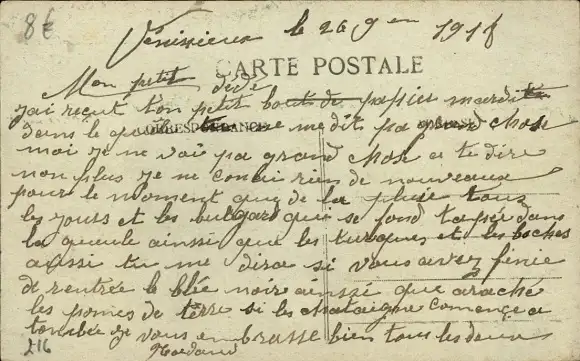 8€
Vénissieux le 26 9en 1918
CARTE POSTALE
Mon petit dédé
j'ai reçut ton petit bout de papier mardit
dans le quel tu me dit pa grand chose
CORRESPONDANCE
moi je ne voi pa grand chose a te dire
non plus je ne conai rien de nouveaux
pour le moment que de la pluie tous
les jours et les bulgare qui se fond taper dans
la gueule ainssi que les turques et les boches
aussi tu me dira si vous avez fénie
de rentrée le blée noir ainssi que araché
les pomes de terre si les chataigne comence a
tombée je vous embrasse bien tous les deux
216